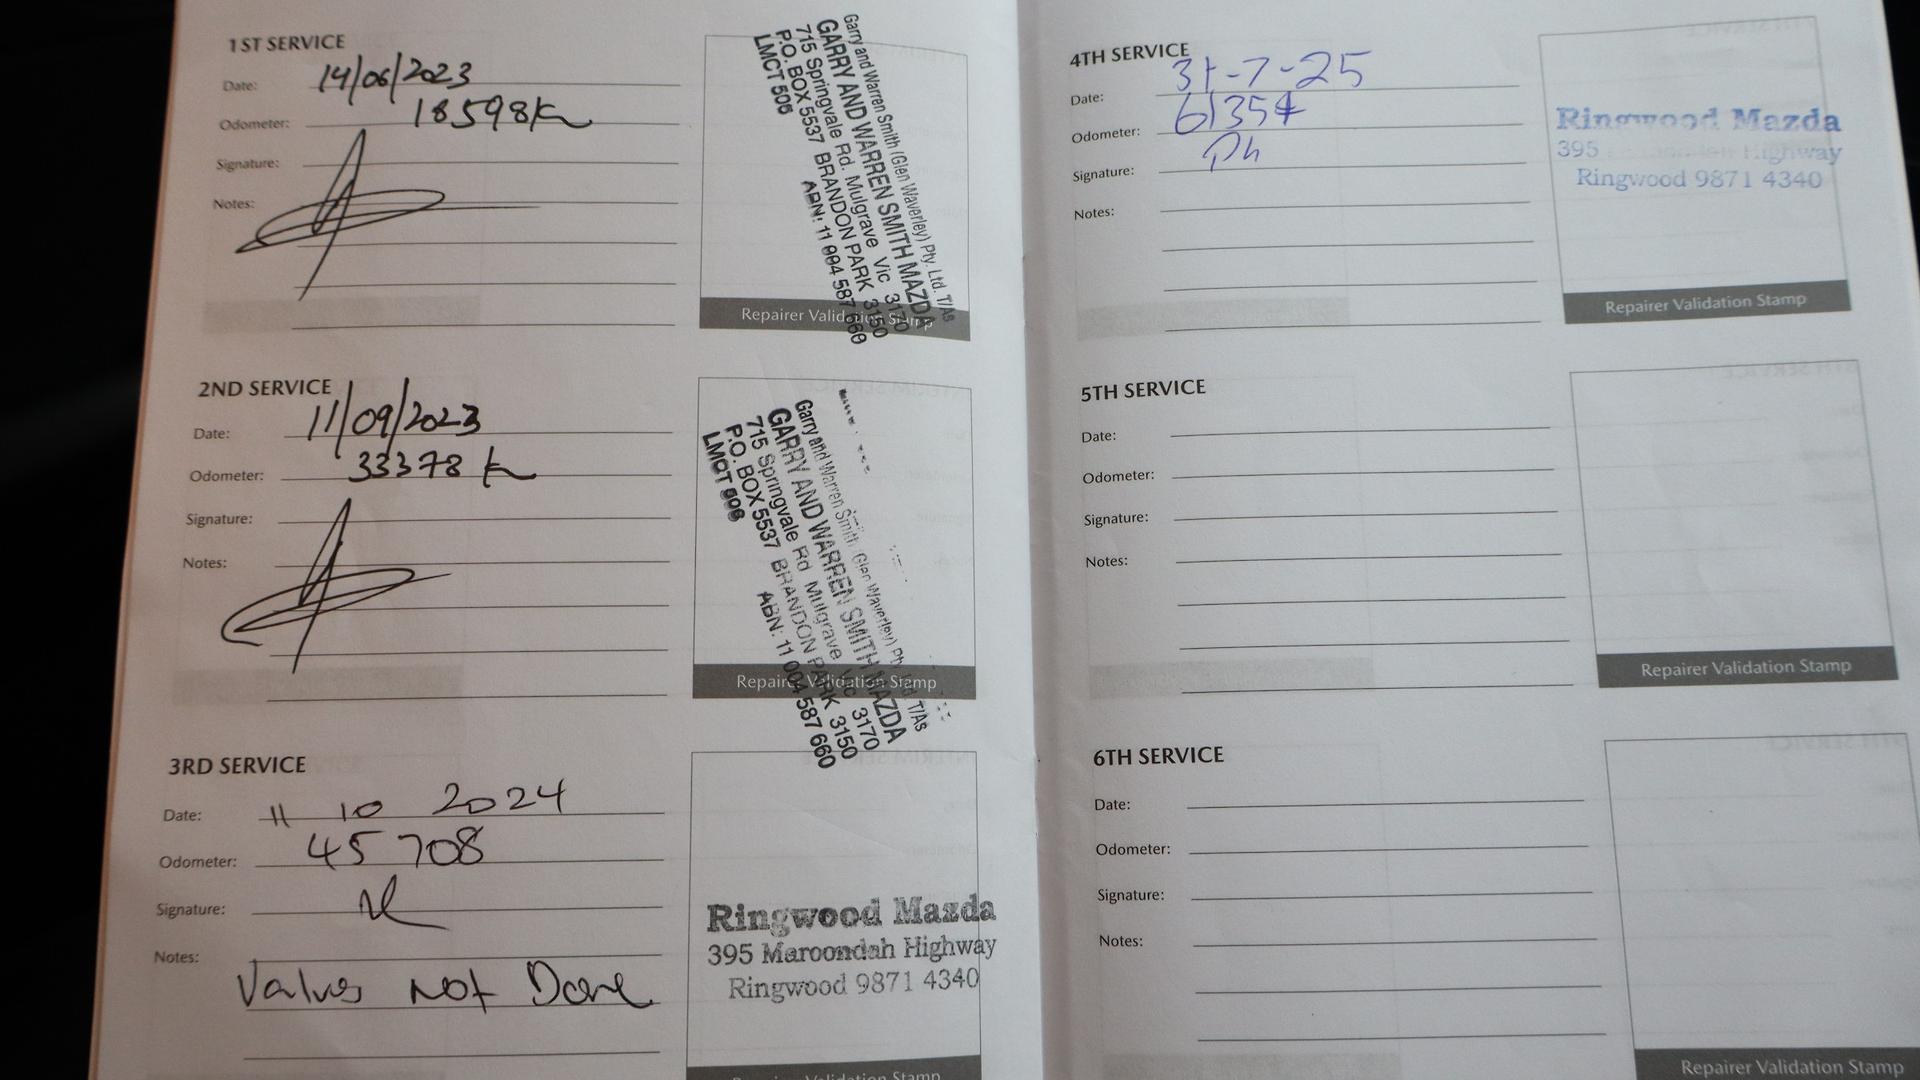 1ST SERVICE
Date: 14/06/2023
Odometer: 18598 K
Signature:
Notes:
Garry and Warren Smith (Glen Waverley) Pty. Ltd. T/As
GARRY AND WARREN SMITH MAZDA
715 Springvale Rd. Mulgrave Vic 3170
P.O. BOX 5537 BRANDON PARK 3150
LMCT 506 ABN: 11 004 587 660
Repairer Validation Stamp
2ND SERVICE
Date: 11/09/2023
Odometer: 33378 K
Signature:
Notes:
Garry and Warren Smith (Glen Waverley) Pty Ltd T/As
GARRY AND WARREN SMITH MAZDA
715 Springvale Rd Mulgrave Vic 3170
P.O. BOX 5537 BRANDON PARK 3150
LMCT 506 ABN: 11 004 587 660
Repairer Validation Stamp
3RD SERVICE
Date: 11 10 2024
Odometer: 45 708
Signature:
Notes:
Valves Not Done
Ringwood Mazda
395 Maroondah Highway
Ringwood 9871 4340
Repairer Validation Stamp
4TH SERVICE
Date: 31-7-25
Odometer: 61354
Signature:
Notes:
Ringwood Mazda
395 Maroondah Highway
Ringwood 9871 4340
Repairer Validation Stamp
5TH SERVICE
Date:
Odometer:
Signature:
Notes:
Repairer Validation Stamp
6TH SERVICE
Date:
Odometer:
Signature:
Notes:
Repairer Validation Stamp